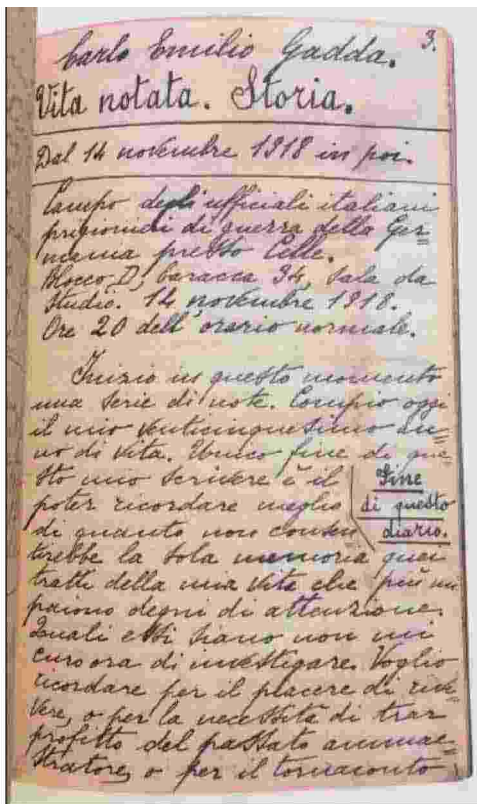 3.
Carlo Emilio Gadda.
Vita notata. Storia.
Dal 14 novembre 1918 in poi.
Campo degli ufficiali italiani
prigionieri di guerra della Ger=
mania presso Celle.
Blocco D, baracca 34, sala da
studio. 14 novembre 1918.
Ore 20 dell'orario normale.
Inizio in questo momento
una serie di note. Compio oggi
il mio venticinquesimo an=
no di vita. Unico fine di que=
sto mio scrivere è il
poter ricordare meglio
di quanto non consen
tirebbe la sola memoria quei
tratti della mia vita che più mi
paiono degni di attenzione.
Quali essi siano non mi
curo ora di investigare. Voglio
ricordare per il piacere di rivi=
vere, o per la necessità di trar
profitto del passato ammae=
stratore, o per il tornaconto
Fine
di questo
diario.